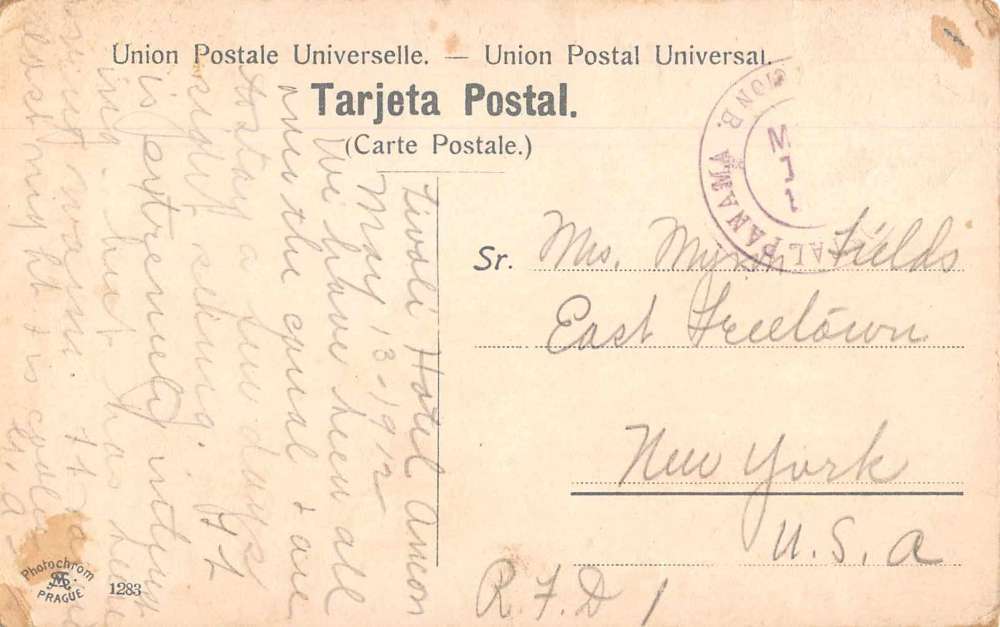 Union Postale Universelle. — Union Postal Universal.
Tarjeta Postal.
(Carte Postale.)
Tivoli Hotel Ancon
May 13-1912
We have been all
over the canal & are
to stay a few days
sight seeing. It
is extremely interest
ing. but has been
warm. It
last night & is cooler
PANAMA
Sr. Mrs. Fields
East Freetown
New York
U. S. A
R. F. D 1
Photochrom
PRAGUE
1283